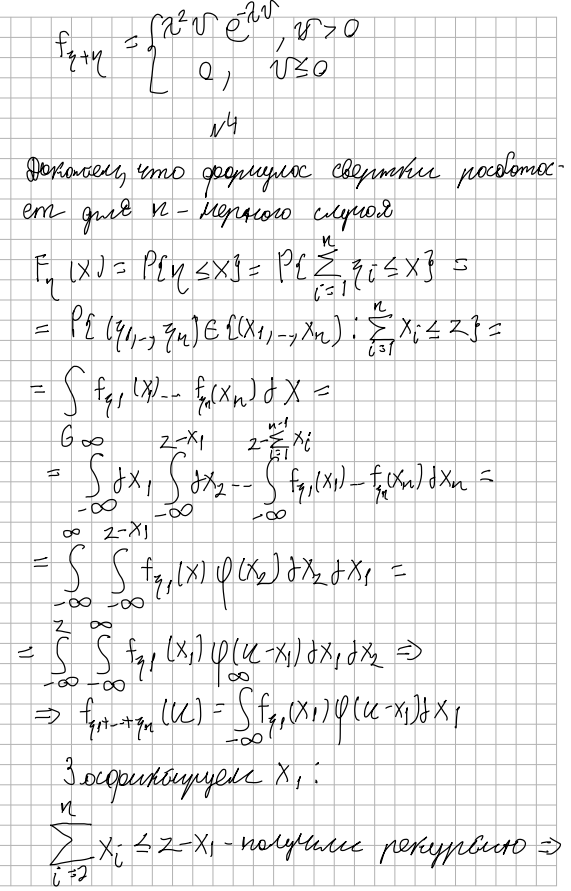 f_{ξ+η} = { λ² v e^{-λv}, v > 0
0, v ≤ 0
N4
Докажем, что формула свертки работа-
ет для n-мерного случая
F_η(x) = P{η ≤ x} = P{∑_{i=1}^{n} ξ_i ≤ x} =
= P{(ξ_1, -, ξ_n) ∈ {(x_1, -, x_n) : ∑_{i=1}^{n} x_i ≤ z} =
= ∫_G f_{ξ_1}(x_1) -- f_{ξ_n}(x_n) dx =
= ∫_{-∞}^{∞} dx_1 ∫_{-∞}^{z-x_1} dx_2 -- ∫_{-∞}^{z-∑_{i=1}^{n-1} x_i} f_{ξ_1}(x_1) - f_{ξ_n}(x_n) dx_n =
= ∫_{-∞}^{∞} ∫_{-∞}^{z-x_1} f_{ξ_1}(x) φ(x_2) dx_2 dx_1 =
= ∫_{-∞}^{z} ∫_{-∞}^{∞} f_{ξ_1}(x_1) φ(u-x_1) dx_1 dx_2 ⇒
⇒ f_{ξ_1+--+ξ_n}(u) = ∫_{-∞}^{∞} f_{ξ_1}(x_1) φ(u-x_1) dx_1
Зафиксируем x_1 :
∑_{i=2}^{n} x_i ≤ z - x_1 - получили рекурсию ⇒